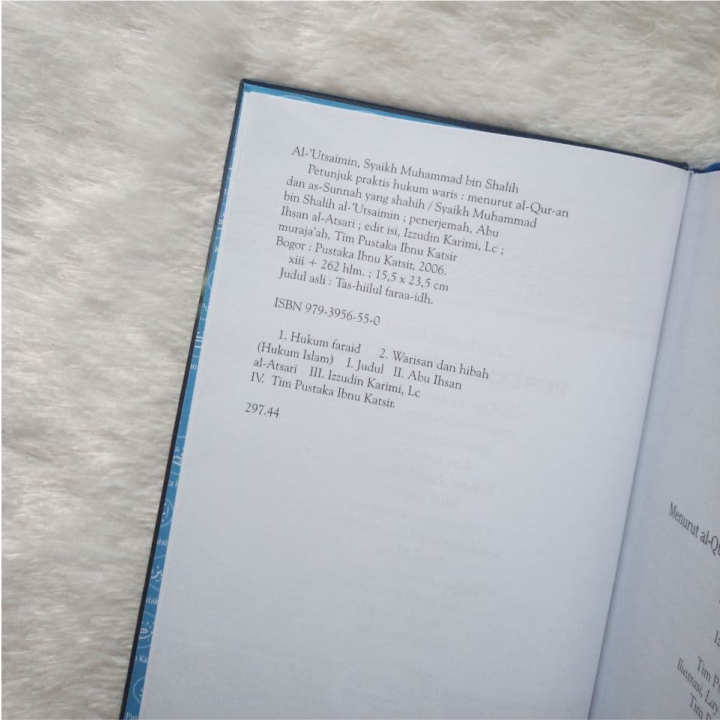 Al-'Utsaimin, Syaikh Muhammad bin Shalih
Petunjuk praktis hukum waris : menurut al-Qur-an
dan as-Sunnah yang shahih / Syaikh Muhammad
bin Shalih al-'Utsaimin ; penerjemah, Abu
Ihsan al-Atsari ; edit isi, Izzudin Karimi, Lc ;
muraja'ah, Tim Pustaka Ibnu Katsir
Bogor : Pustaka Ibnu Katsir, 2006.
xiii + 262 hlm. ; 15,5 x 23,5 cm
Judul asli : Tas-hiilul faraa-idh.
ISBN 979-3956-55-0
1. Hukum faraid 2. Warisan dan hibah
(Hukum Islam) I. Judul II. Abu Ihsan
al-Atsari III. Izzudin Karimi, Lc
IV. Tim Pustaka Ibnu Katsir.
297.44
Menurut
Tim
Ilustrasi,
Tim